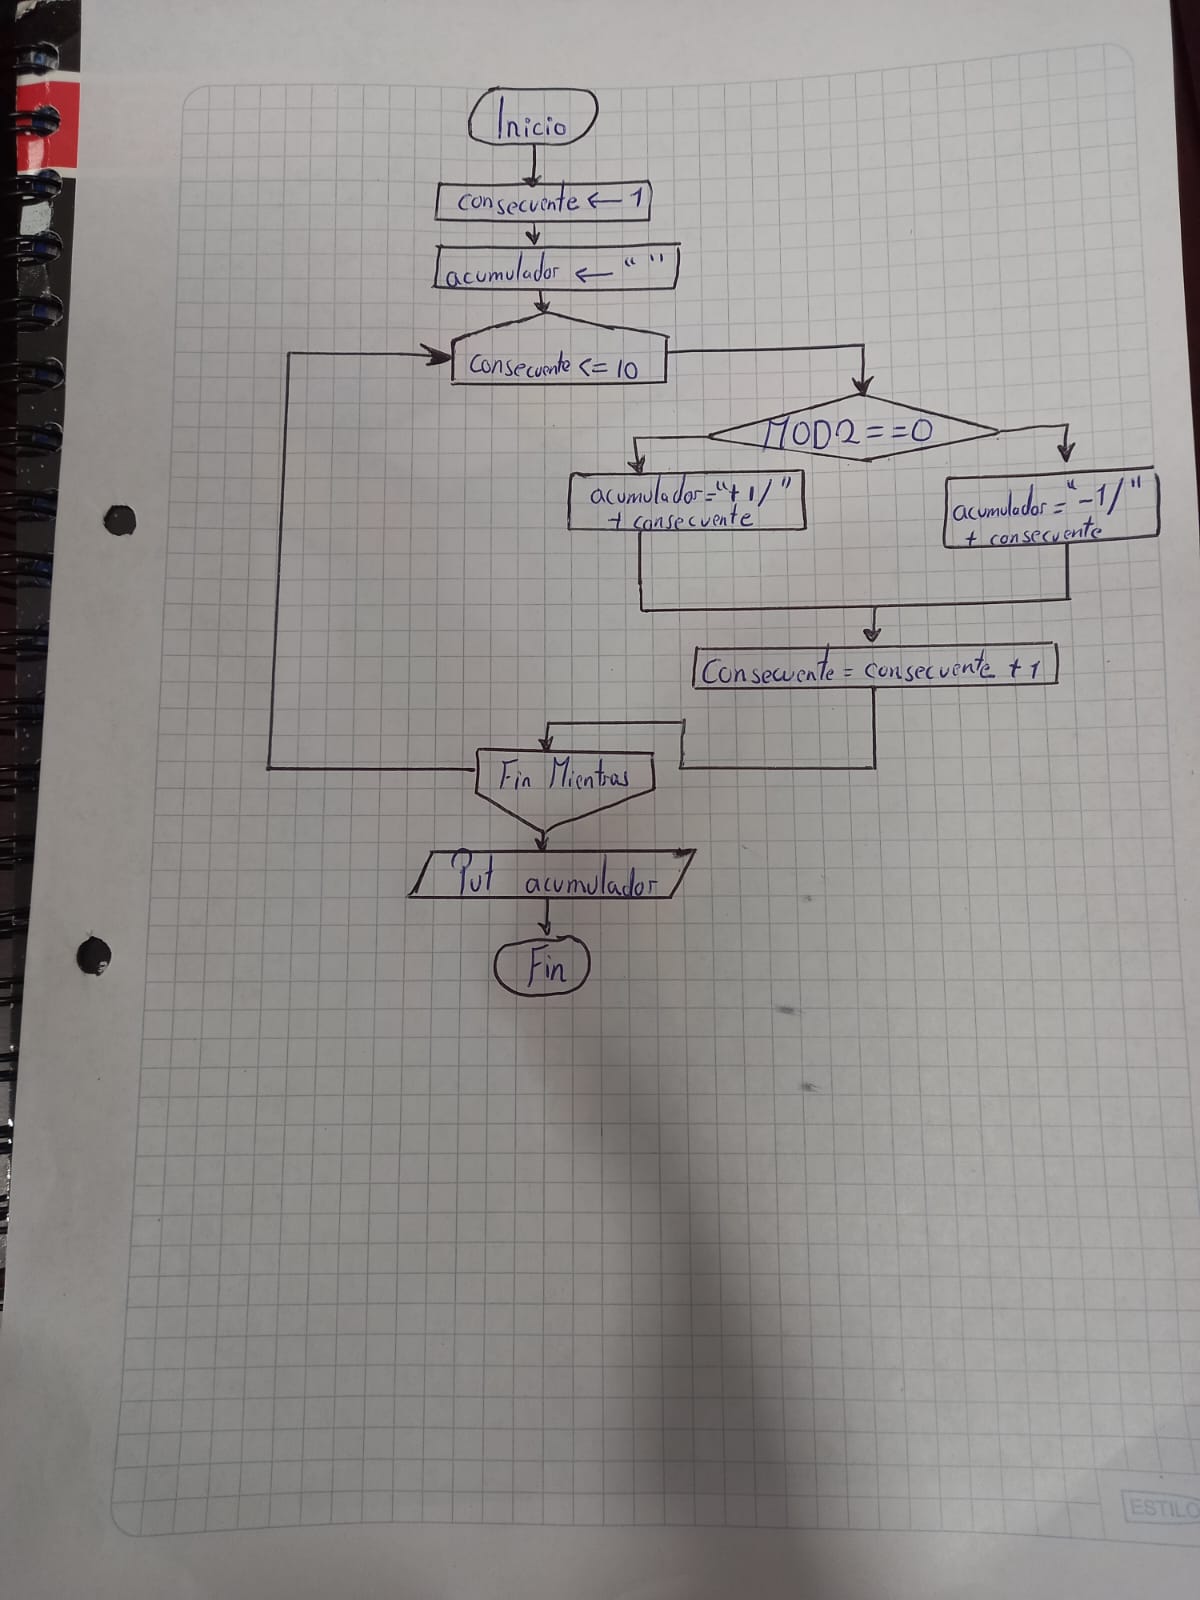 Inicio
consecuente ← 1
acumulador ← “ ”
consecuente <= 10
MOD2==0
acumulador=“+1/”
+ consecuente
acumulador=“-1/”
+ consecuente
Consecuente = consecuente +1
Fin Mientras
Put acumulador
Fin
ESTILO